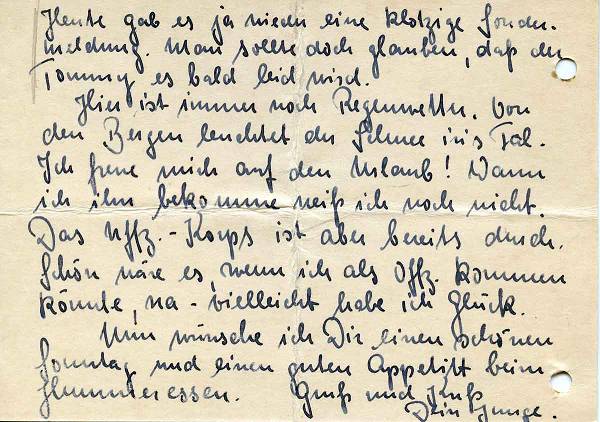 Heute gab es ja wieder eine klotzige Sonder-
meldung. Man sollte doch glauben, daß der
Tommy es bald leid wird.
Hier ist immer noch Regenwetter. Von
den Bergen leuchtet der Schnee in's Tal.
Ich freue mich auf den Urlaub! Wann
ich ihn bekomme weiß ich noch nicht.
Das Uffz.-Korps ist aber bereits durch.
Schön wäre es, wenn ich als Offz. kommen
könnte, na - vielleicht habe ich Glück.
Nun wünsche ich Dir einen schönen
Sonntag und einen guten Appetitt beim
essen. Gruß und Kuß
Dein Junge.